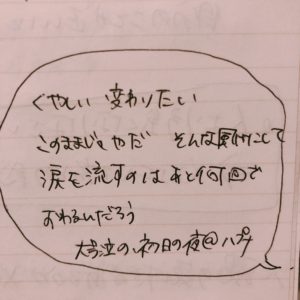 くやしい 変わりたい
このままじゃやだ そんな風にして
涙を流すのはあと何回で
おわるんだろう
大号泣の、初日の夜@